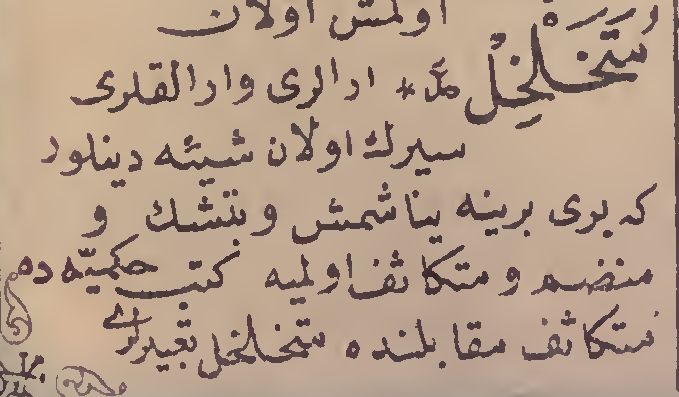 اولمش اولان
متخلخل * ارالری وارالقلری
سیرك اولان شیئه دینلور
که بری برینه یناشمش وبتشك و
منضم و متكاثف اولمیه كتب حكمیّه ده
متكاثف مقابلنده متخلخل تعبیر